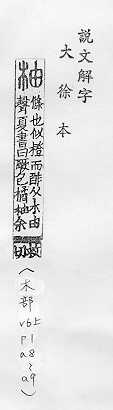 說文解字
大徐本
柚 條也似橙而酢从木由
聲夏書曰厥包橘柚余
救切
(木部
v6上
p1
a8~
a9)